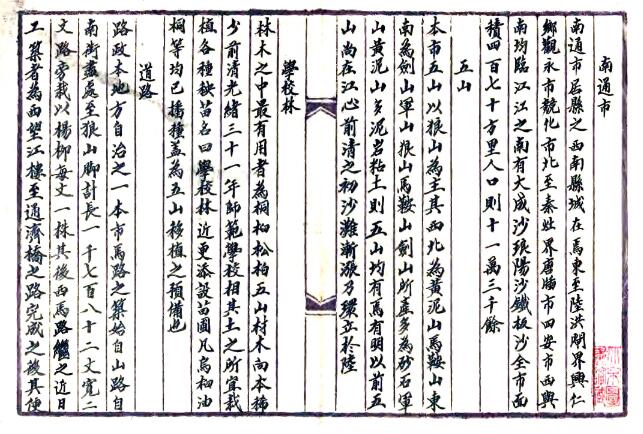 南通市
南通市居縣之西南縣城在焉東至陸洪閘界興仁
鄉觀永市競化市北至秦灶界唐牐市四安市西與
南均臨江江之南有大成沙琅陽沙鐵板沙全市面
積四百七十方里人口則十一萬三千餘
五山
本市五山以狼山為主其西北為黃泥山馬鞍山東
南為劍山軍山狼山馬鞍山劍山所產多為砂石軍
山黃泥山多泥岩粘土則五山均有焉有明以前五
山尚在江心前清之初沙灘漸漲乃環立於陸
學校林
林木之中最有用者為桐桕松柏五山材木向本稀
少前清光緒三十一年師範學校相其土之所宜栽
植各種秧苗名曰學校林近更添設苗圃凡烏桕油
桐等均已播種蓋為五山移植之預備也
道路
路政本地方自治之一本市馬路之築始自山路自
南街盡處至狼山脚計長一千七百八十二丈寬二
丈路旁栽以楊柳每丈一株其後西馬路繼之近日
工築者為西望江樓至通濟橋之路完成之後其便